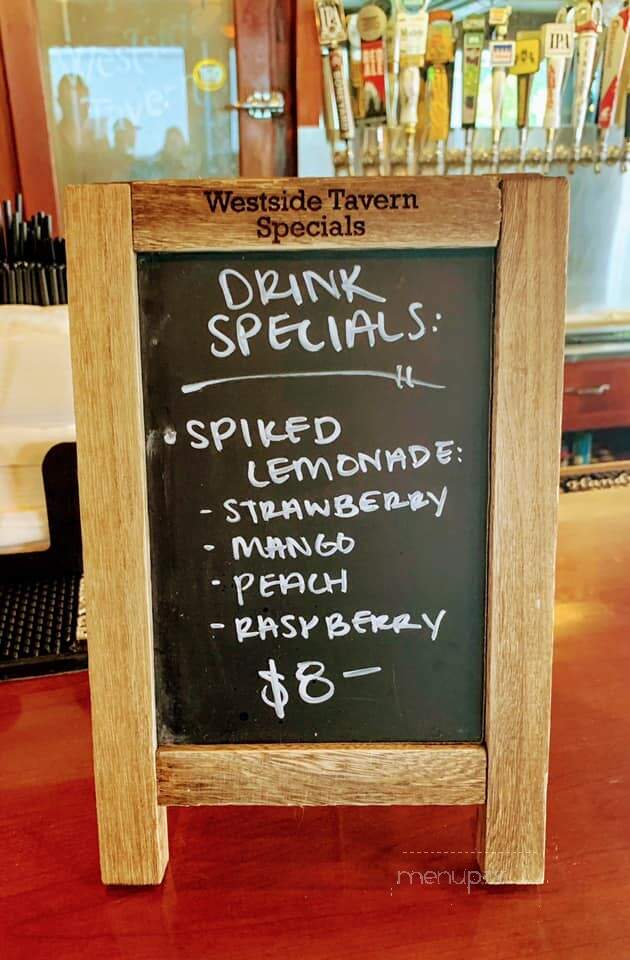 Westside Tavern
Specials
DRINK
SPECIALS:
• SPIKED
LEMONADE:
- STRAWBERRY
- MANGO
- PEACH
- RASPBERRY
$8-
IPA
IPA